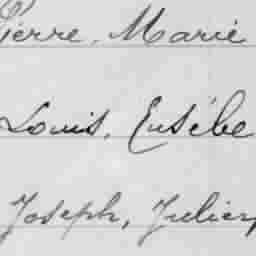 Pierre, Marie
Louis, Eusèbe
Joseph, Julien,